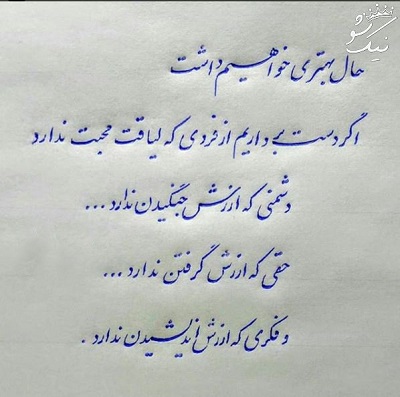 نیک شو
حال بهتری خواهیم داشت
اگر دست برداریم از فردی که لیاقت محبت ندارد
دشمنی که ارزش جنگیدن ندارد ...
حقی که ارزش گرفتن ندارد ...
و فکری که ارزش اندیشیدن ندارد .